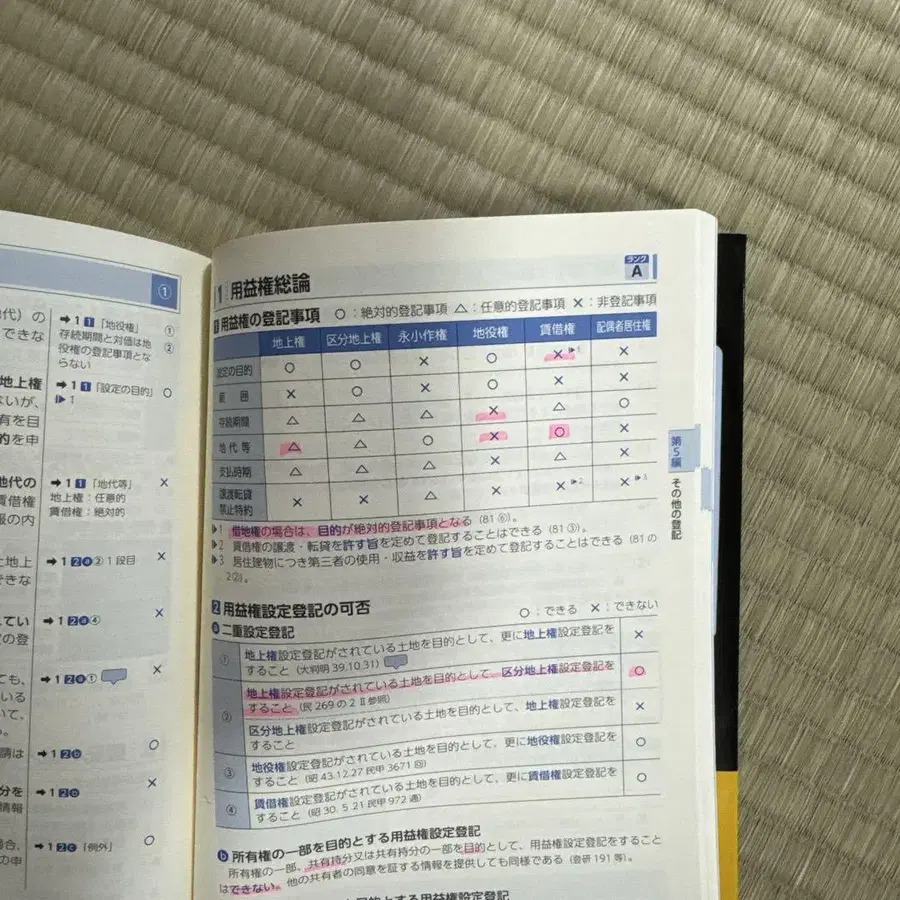 ①
地代）の
できな
➡1 1「地役権」 ①
存続期間と対価は地 ②
役権の登記事項とな
らない
地上権
ないが、
有を目
的を申
➡1 1「設定の目的」 ○
▶1
地代の
賃借権
報の内
➡1 1「地代等」 ×
地上権：任意的
賃借権：絶対的
土に地上
できな
➡1 2ⓐ② 1段目 ×
てい
の登
➡1 2ⓐ④ ×
ても、
いる
いて、
➡1 2ⓐ① ×
請は
➡1 2ⓑ ○
分を
情報
➡1 2ⓑ ×
場合、
の申
➡1 2ⓒ「例外」 ○
1 用益権総論
ランク
A
1 用益権の登記事項 ○：絶対的登記事項 △：任意的登記事項 ×：非登記事項
地上権 区分地上権 永小作権 地役権 賃借権 配偶者居住権
設定の目的 ○ ○ × ○ ×▶1 ×
範囲 × ○ × ○ × ×
存続期間 △ △ △ × △ ○
地代等 △ △ ○ × ○ ×
支払時期 △ △ △ × △ ×
譲渡転貸
禁止特約 × × △ × ×▶2 ×▶3
▶1 借地権の場合は、目的が絶対的登記事項となる（81⑥）。
▶2 賃借権の譲渡・転貸を許す旨を定めて登記することはできる（81③）。
▶3 居住建物につき第三者の使用・収益を許す旨を定めて登記することはできる（81の
2②）。
2 用益権設定登記の可否 ○：できる ×：できない
ⓐ 二重設定登記
① 地上権設定登記がされている土地を目的として、更に地上権設定登記を
すること（大判明39.10.31） ×
② 地上権設定登記がされている土地を目的として、区分地上権設定登記を
すること（民269の2Ⅱ参照） ○
区分地上権設定登記がされている土地を目的として、地上権設定登記を
すること ×
③ 地役権設定登記がされている土地を目的として、更に地役権設定登記を
すること（昭43.12.27民甲3671回） ○
④ 賃借権設定登記がされている土地を目的として、更に賃借権設定登記を
すること（昭30.5.21民甲972通） ○
ⓑ 所有権の一部を目的とする用益権設定登記
所有権の一部、共有持分又は共有持分の一部を目的として、用益権設定登記をすること
はできない。他の共有者の同意を証する情報を提供しても同様である（登研191等）。
目的とする用益権設定登記
第5編
その他の登記